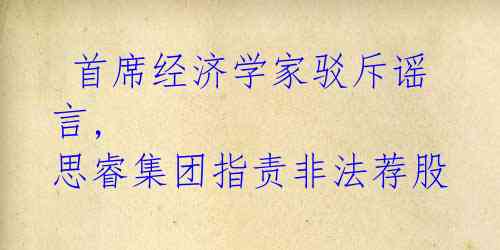 首席经济学家驳斥谣
言，
思睿集团指责非法荐股